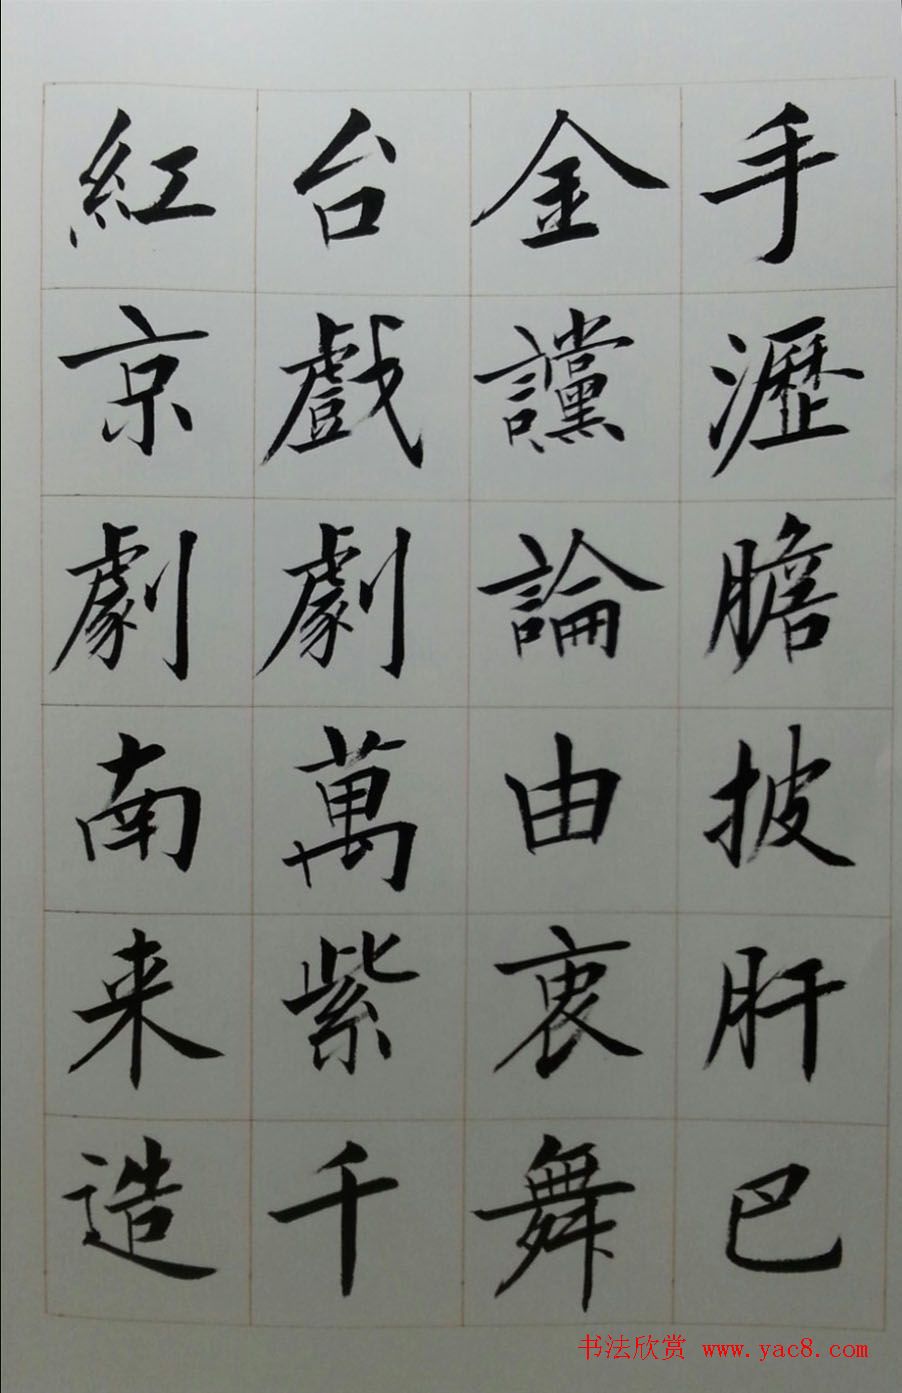 手瀝膽披肝巴
金讜論由衷舞
台戲劇萬紫千
紅京劇南来造
书法欣赏 www.yac8.com